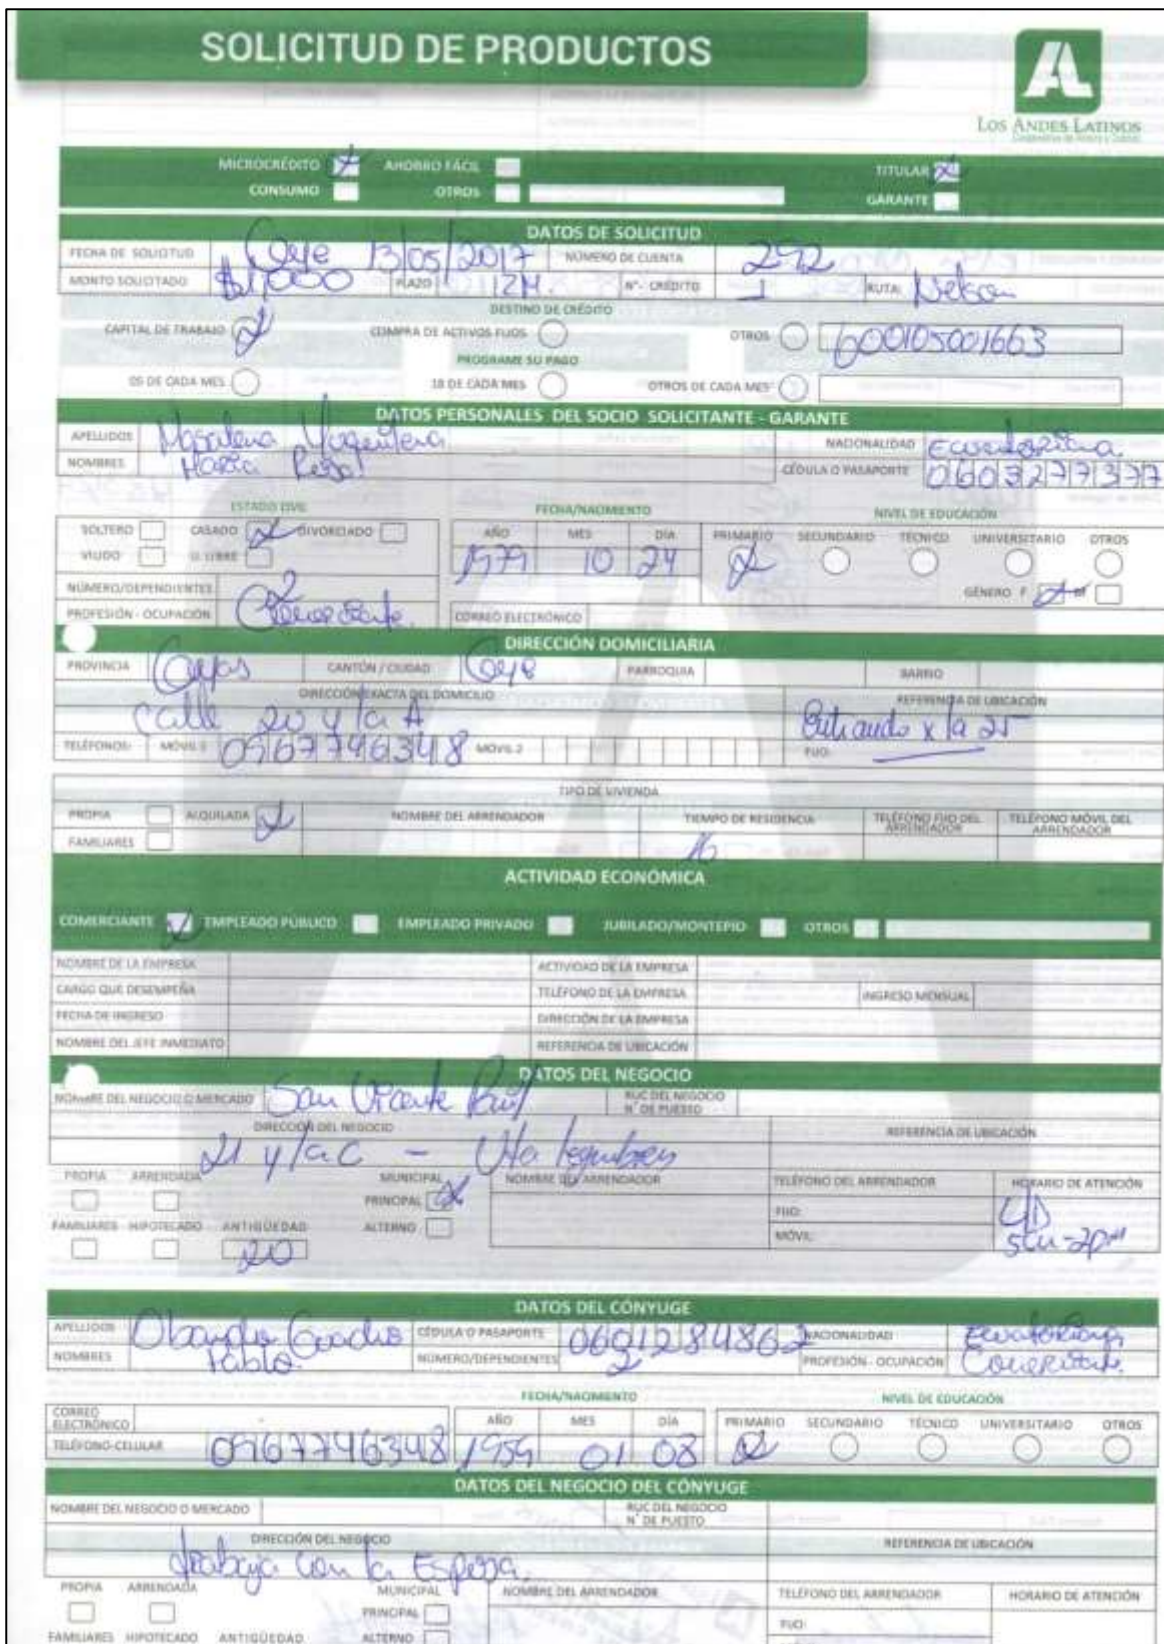 SOLICITUD DE PRODUCTOS
LOS ANDES LATINOS
MICROCRÉDITO AHORRO FÁCIL TITULAR
CONSUMO OTROS GARANTE
DATOS DE SOLICITUD
FECHA DE SOLICITUD 13/05/2017 NÚMERO DE CUENTA 292
MONTO SOLICITADO $1,000 PLAZO 12M. N°- CRÉDITO 1 RUTA: Nelson
DESTINO DE CRÉDITO
CAPITAL DE TRABAJO COMPRA DE ACTIVOS FIJOS OTROS 600105001663
PROGRAME SU PAGO
05 DE CADA MES 18 DE CADA MES OTROS DE CADA MES
DATOS PERSONALES DEL SOCIO SOLICITANTE - GARANTE
APELLIDOS NACIONALIDAD Ecuatoriana
NOMBRES María CÉDULA O PASAPORTE 0603277377
ESTADO CIVIL FECHA/NACIMIENTO NIVEL DE EDUCACIÓN
SOLTERO CASADO DIVORCIADO AÑO MES DÍA PRIMARIO SECUNDARIO TECNICO UNIVERSITARIO OTROS
VIUDO U. LIBRE 1979 10 24
NÚMERO/DEPENDIENTES 2 GÉNERO F M
PROFESIÓN - OCUPACIÓN Comerciante. CORREO ELECTRÓNICO
DIRECCIÓN DOMICILIARIA
PROVINCIA CANTÓN / CIUDAD PARROQUIA BARRIO
DIRECCIÓN EXACTA DEL DOMICILIO REFERENCIA DE UBICACIÓN
Calle 20 y la A Entrando x la 25
TELÉFONOS: MÓVIL 1 0967746348 MÓVIL 2 FIJO:
TIPO DE VIVIENDA
PROPIA ALQUILADA NOMBRE DEL ARRENDADOR TIEMPO DE RESIDENCIA TELÉFONO FIJO DEL ARRENDADOR TELÉFONO MÓVIL DEL ARRENDADOR
FAMILIARES
ACTIVIDAD ECONÓMICA
COMERCIANTE EMPLEADO PÚBLICO EMPLEADO PRIVADO JUBILADO/MONTEPIO OTROS
NOMBRE DE LA EMPRESA ACTIVIDAD DE LA EMPRESA
CARGO QUE DESEMPEÑA TELÉFONO DE LA EMPRESA INGRESO MENSUAL
FECHA DE INGRESO DIRECCIÓN DE LA EMPRESA
NOMBRE DEL JEFE INMEDIATO REFERENCIA DE UBICACIÓN
DATOS DEL NEGOCIO
NOMBRE DEL NEGOCIO O MERCADO San Vicente Paúl RUC DEL NEGOCIO N° DE PUESTO
DIRECCIÓN DEL NEGOCIO REFERENCIA DE UBICACIÓN
21 y la C - Vta legumbres
PROPIA ARRENDADA MUNICIPAL NOMBRE DEL ARRENDADOR TELÉFONO DEL ARRENDADOR HORARIO DE ATENCIÓN
PRINCIPAL FIJO:
FAMILIARES HIPOTECADO ANTIGÜEDAD ALTERNO MÓVIL:
20
DATOS DEL CÓNYUGE
APELLIDOS CÉDULA O PASAPORTE 0601284862 NACIONALIDAD Ecuatoriana
NOMBRES Pablo NÚMERO/DEPENDIENTES 2 PROFESIÓN - OCUPACIÓN Comerciante.
FECHA/NACIMIENTO NIVEL DE EDUCACIÓN
CORREO ELECTRÓNICO AÑO MES DÍA PRIMARIO SECUNDARIO TÉCNICO UNIVERSITARIO OTROS
TELÉFONO-CELULAR 0967746348 1959 01 08
DATOS DEL NEGOCIO DEL CÓNYUGE
NOMBRE DEL NEGOCIO O MERCADO RUC DEL NEGOCIO N° DE PUESTO
DIRECCIÓN DEL NEGOCIO REFERENCIA DE UBICACIÓN
trabaja con la Esposa.
PROPIA ARRENDADA MUNICIPAL NOMBRE DEL ARRENDADOR TELÉFONO DEL ARRENDADOR HORARIO DE ATENCIÓN
PRINCIPAL FIJO:
FAMILIARES HIPOTECADO ANTIGÜEDAD ALTERNO